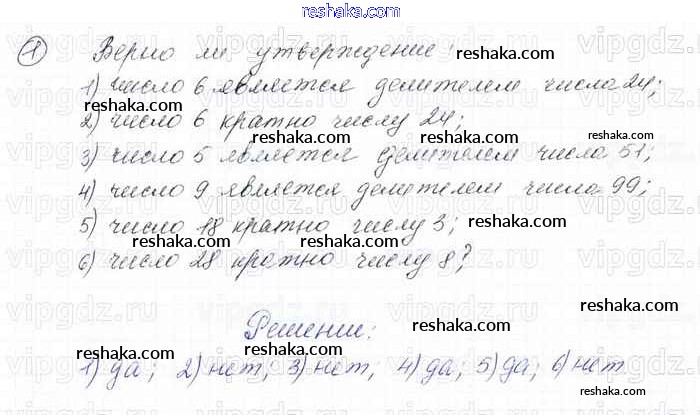 reshaka.com
① Верно ли утверждение: reshaka.com
1) число 6 является делителем числа 24;
reshaka.com
2) число 6 кратно числу 24;
reshaka.com
3) число 5 является делителем числа 51;
reshaka.com
4) число 9 является делителем числа 99;
5) число 18 кратно числу 3; reshaka.com
6) число 28 кратно числу 8?
reshaka.com
Решение: reshaka.com
reshaka.com
1) да; 2) нет; 3) нет; 4) да; 5) да; 6) нет
reshaka.com
vipgdz.ru vipgdz.ru vipgdz.ru vipgdz.ru